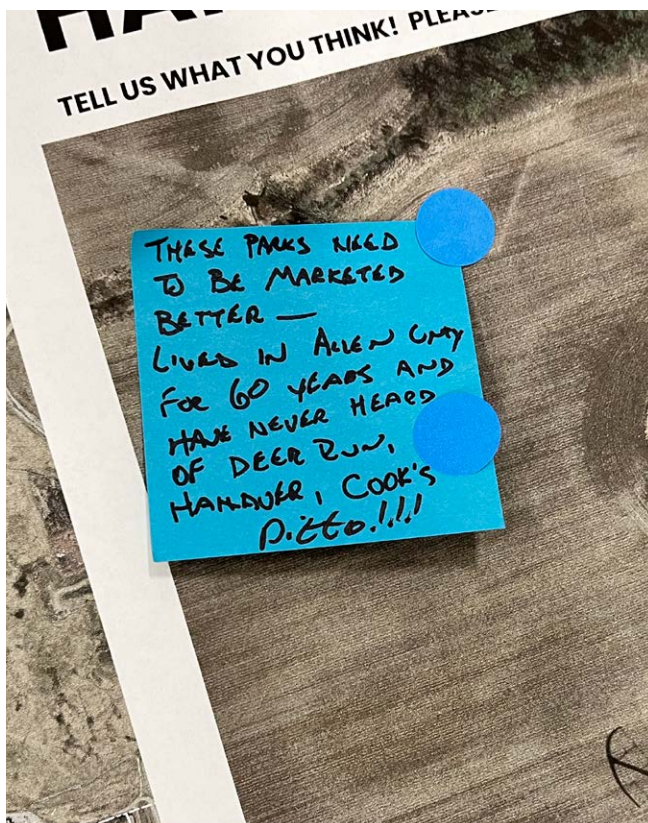 TELL US WHAT YOU THINK! PLEASE
THESE PARKS NEED
TO BE MARKETED
BETTER —
LIVED IN ALLEN CNTY
FOR 60 YEARS AND
HAVE NEVER HEARD
OF DEER RUN,
HANOVER, COOK'S
Ditto!!!!